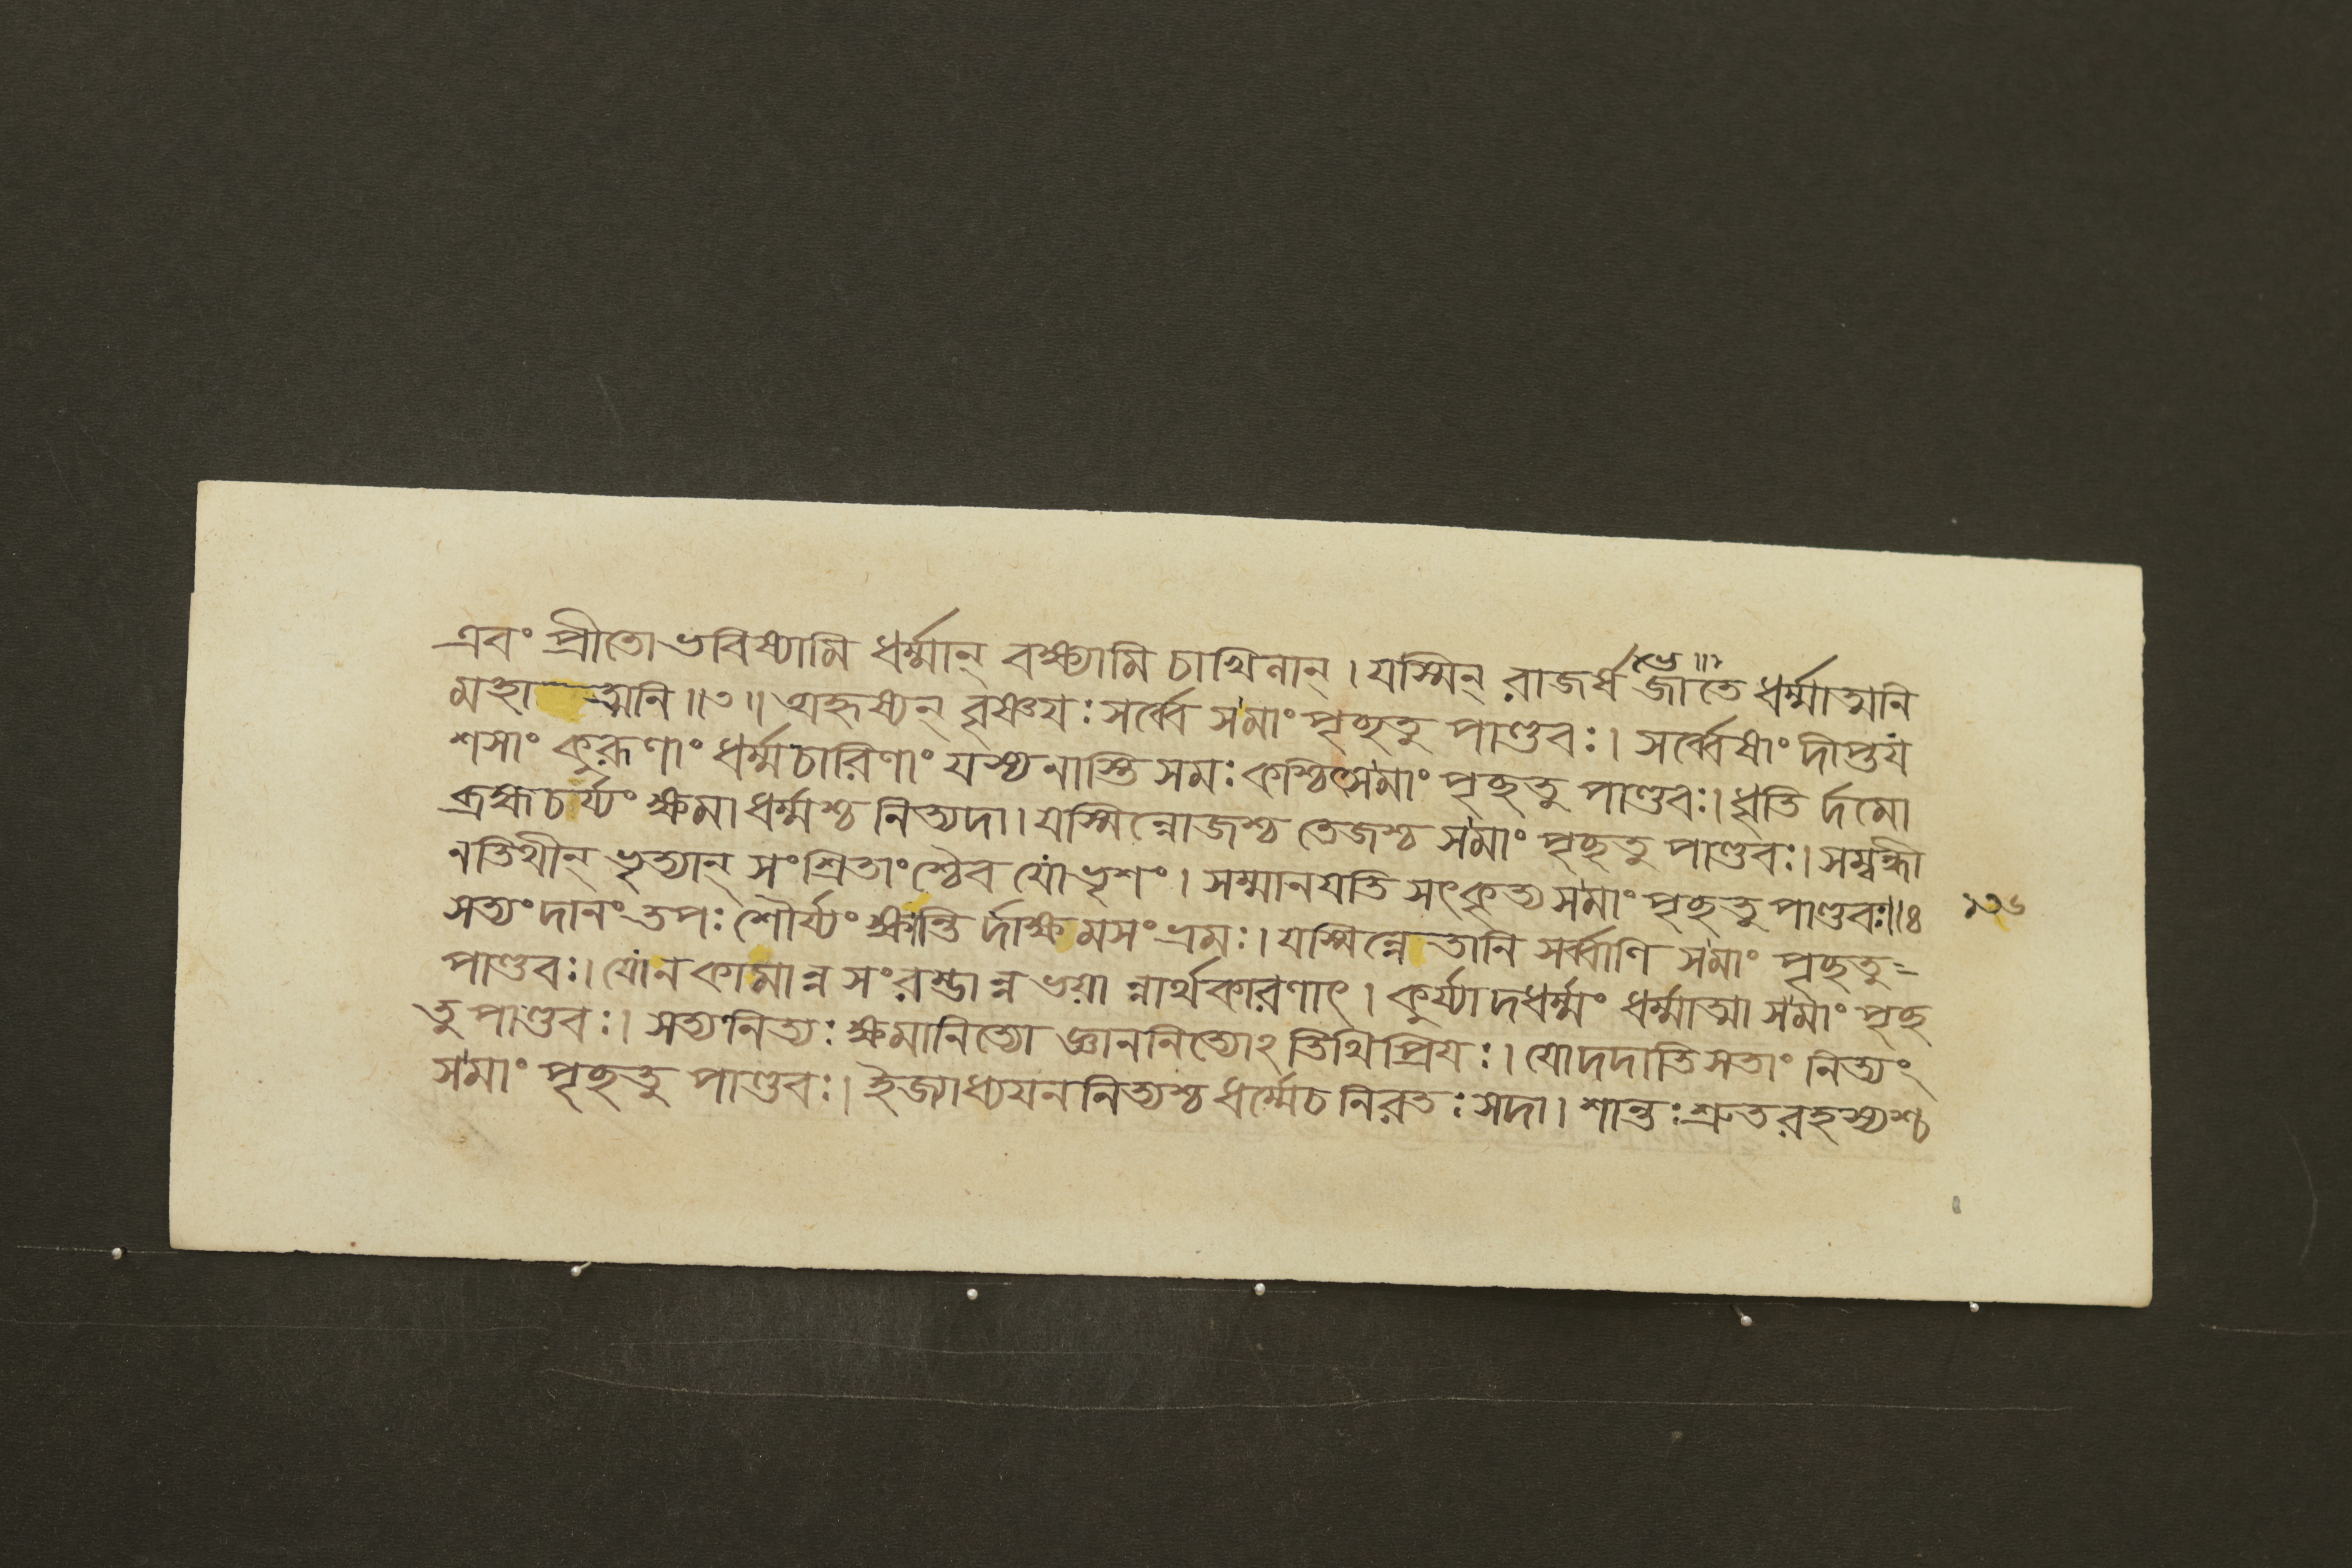 এবং প্রীতো ভবিষ্যামি ধর্ম্মান্ বক্ষ্যামি চাখিলান্ । যস্মিন্ রাজর্ষ জাতে ধর্ম্মাত্মনি
মহা ত্মনি ॥৩॥ অহৃষ্যন্ বৃষ্ণয়ঃ সর্ব্বে স মাং পৃচ্ছতু পাণ্ডবঃ । সর্ব্বেষাং দীপ্তয
শসাং কুরূণাং ধর্ম্মচারিণাং যস্য নাস্তি সমঃ কশ্চিৎ স মাং পৃচ্ছতু পাণ্ডবঃ । ধৃতি র্দমো
ব্রহ্মচর্য্যং ক্ষমা ধর্ম্মশ্চ নিত্যদা । যস্মিন্নোজশ্চ তেজশ্চ স মাং পৃচ্ছতু পাণ্ডবঃ । সম্বন্ধী
নতিথীন্ ভৃত্যান্ সংশ্রিতাংশ্চৈব যো ভৃশং । সম্মানয়তি সৎকৃত্য স মাং পৃচ্ছতু পাণ্ডবঃ ॥৪
১৩৬
সত্যং দানং তপঃ শৌর্য্যং ক্ষান্তি র্দাক্ষমসংভ্রমঃ । যস্মিন্নেতানি সর্ব্বাণি স মাং পৃচ্ছতু
পাণ্ডবঃ । যো ন কামান্ন সংরম্ভান্ন ভয়া ন্নার্থকারণাৎ । কুর্য্যাদধর্ম্মং ধর্ম্মাত্মা স মাং পৃচ্ছ
তু পাণ্ডবঃ । সত্যনিত্যঃ ক্ষমানিত্যো জ্ঞাননিত্যোঽতিথিপ্রিয়ঃ । যো দদাতি সতাং নিত্যং
স মাং পৃচ্ছতু পাণ্ডবঃ । ইজ্যাধ্যয়ননিত্যশ্চ ধর্ম্মে চ নিরতঃ সদা । শান্তঃ শ্রুতরহস্যশ্চ